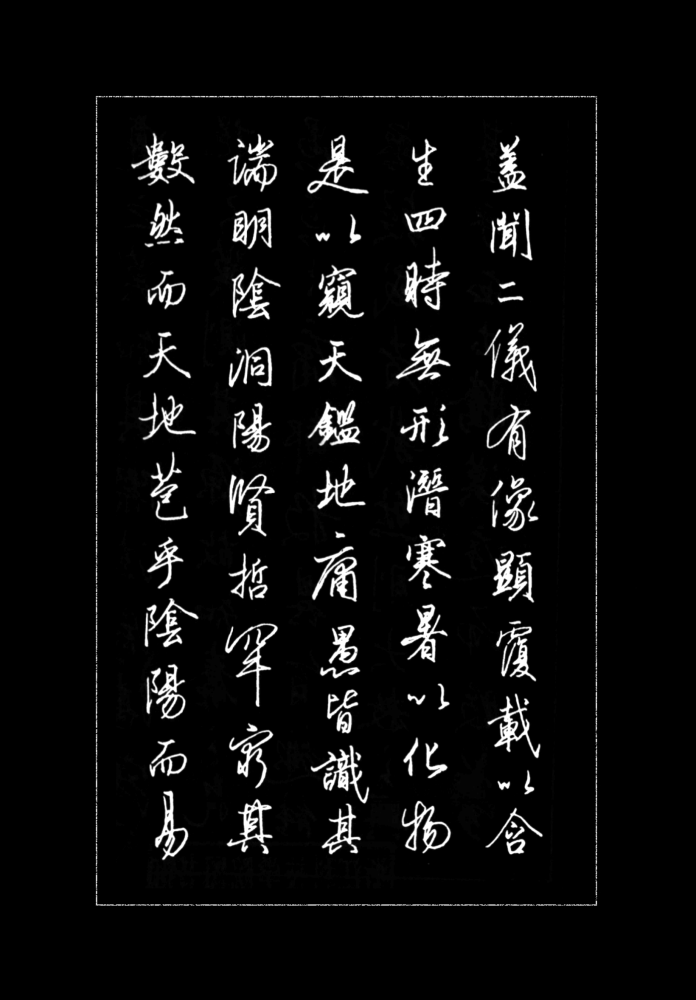 蓋聞二儀有像顯覆載以含
生四時無形潛寒暑以化物
是以窺天鑑地庸愚皆識其
端明陰洞陽賢哲罕窮其
數然而天地苞乎陰陽而易